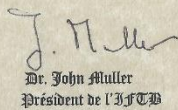 J. Muller
Dr. John Muller
Président de l'IFTB